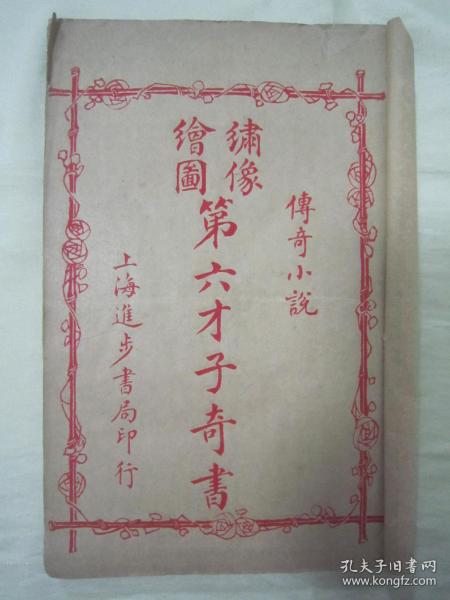 傳奇小說
繡像
繪圖
第六才子奇書
上海進步書局印行
孔夫子旧书网
www.kongfz.com